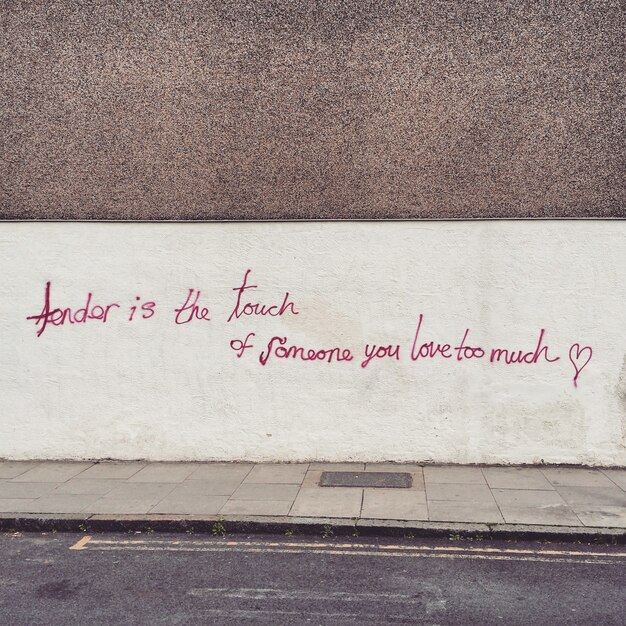 tender is the touch
of someone you love too much ♡